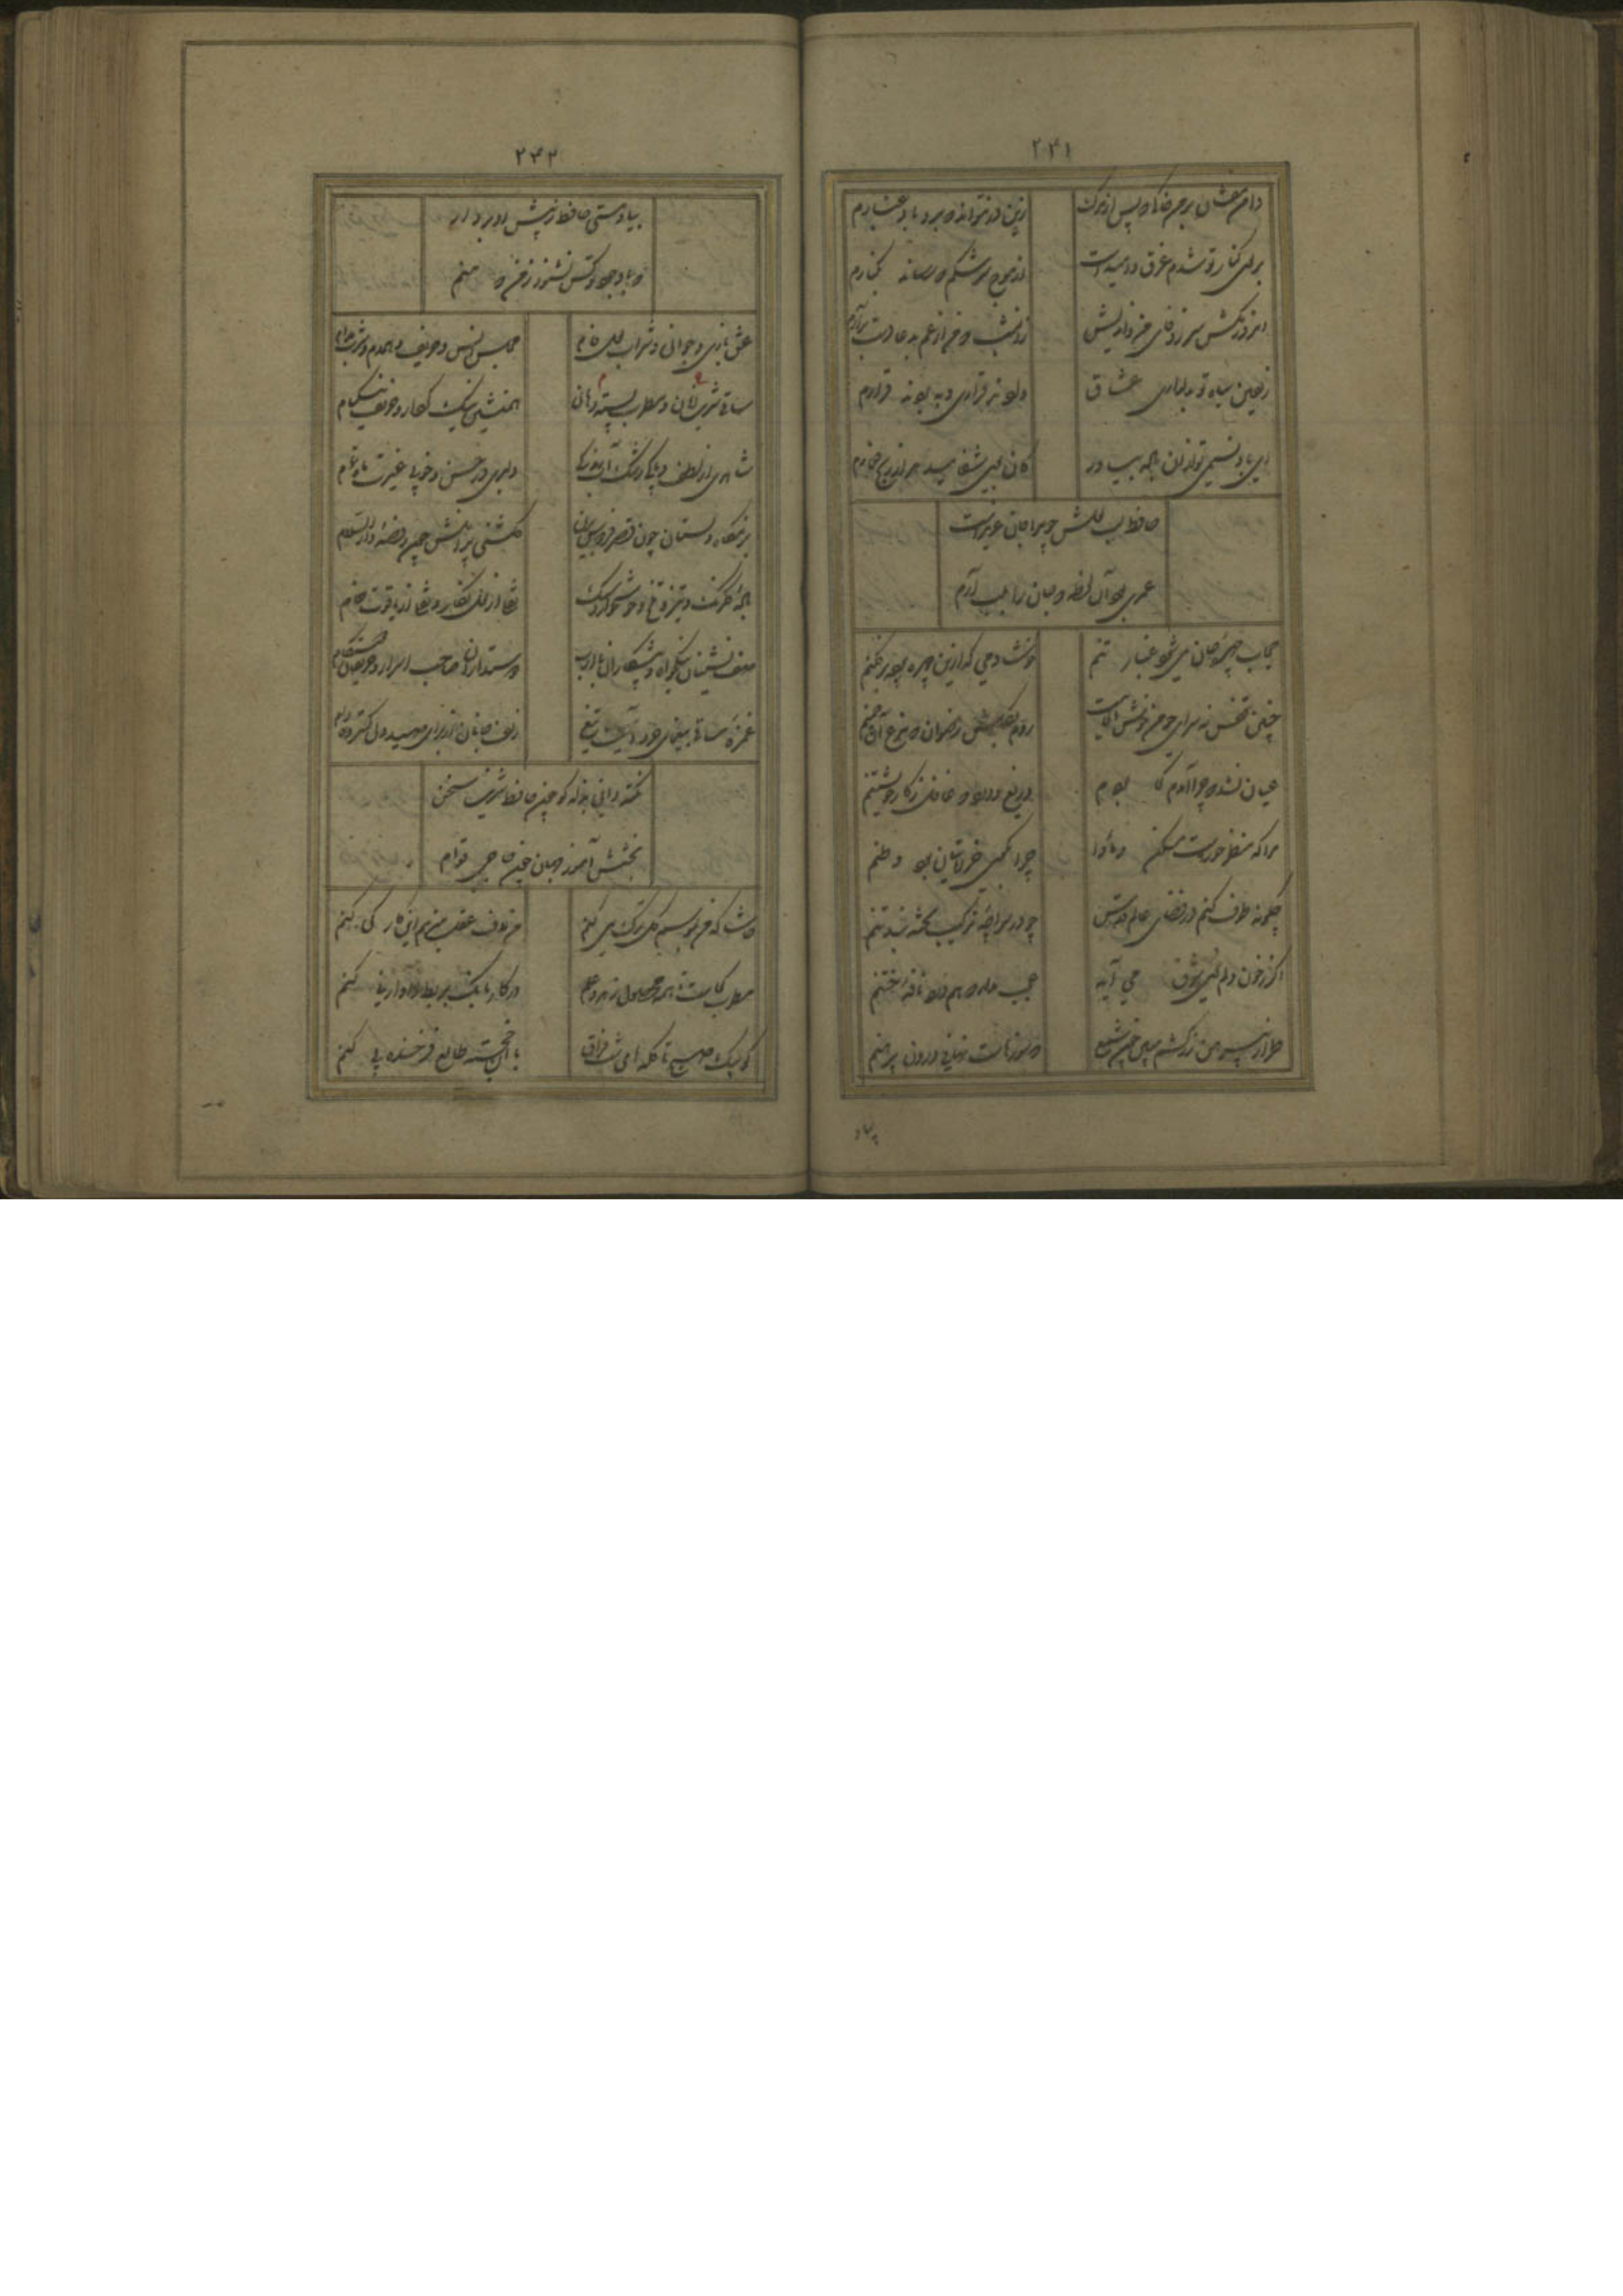 ۲۴۱
دامن مفشان بر من خاکی و پس از مرگ زین در نتواند که برد باد غبارم
بر بوی کنار تو شدم غرق و امیدست از موج سرشکم که رساند بکنارم
امروز مکش سر ز وفای من و اندیش زان شب که من از غم به دعا دست برآرم
زلفین سیاه تو بدلداری عشاق دادند قراری و ببردند قرارم
ای باد نسیمی تو از آن باده بیاور کان بوی شفا میدهد از رنج خمارم
حافظ لب لعلش چو مرا جان عزیزست
عمری بود آن لحظه که جان را بلب آرم
حجاب چهره جان می شود غبار تنم خوشا دمی که ازین چهره پرده برفکنم
چنین قفس نه سزای چو من خوش الحانست روم بگلشن رضوان که مرغ آن چمنم
عیان نشد که چرا آمدم کجا بودم دریغ و درد که غافل ز کار خویشتنم
مرا که منظر حورست مسکن و ماوا چرا بکوی خراباتیان بود وطنم
چگونه طوف کنم در فضای عالم قدس چو در سراچه ترکیب تخته بند تنم
اگر ز خون دلم بوی شوق می آید عجب مدار که هم درد نافه ختنم
طراز پیرهن زرکشم مبین چون شمع که سوزهاست نهانی درون پیرهنم
بیا و
۲۴۲
بیا و هستی حافظ ز پیش او بردار
که با وجود تو کس نشنود ز من که منم
عشق بازی و جوانی و شراب لعل فام مجلس انس و حریف همدم و شرب مدام
ساقی شکر دهان و مطرب شیرین زبان همنشینی نیک کردار و حریف نیکنام
شاهدی از لطف و پاکی رشک آب زندگی دلبری در حسن و خوبی غیرت ماه تمام
بزمگاه دلستان چون قصر فردوس برین گلشنی پیرامنش چون روضه دارالسلام
باده گلرنگ و تیز و تلخ و خوشخوار و سبک نقلی از لعل نگار و نقلی از یاقوت خام
صف نشینان نیکخواه و پیشکاران با ادب دوستداران صاحب اسرار و حریفان دوستکام
غمزه ساقی بیغمای خرد آهخته تیغ زلف جانان از برای صید دل گسترده دام
نکته دانی بذله گو چون حافظ شیرین سخن
بخشش آموز جهان چون حاجی قوام
حاشا که من بموسم گل ترک می کنم من لاف عقل میزنم این کار کی کنم
مطرب کجاست تا همه محصول زهد و علم در کار بانگ بربط و آواز نی کنم
کو پیک صبح تا گله های شب فراق با آن خجسته طالع فرخنده پی کنم